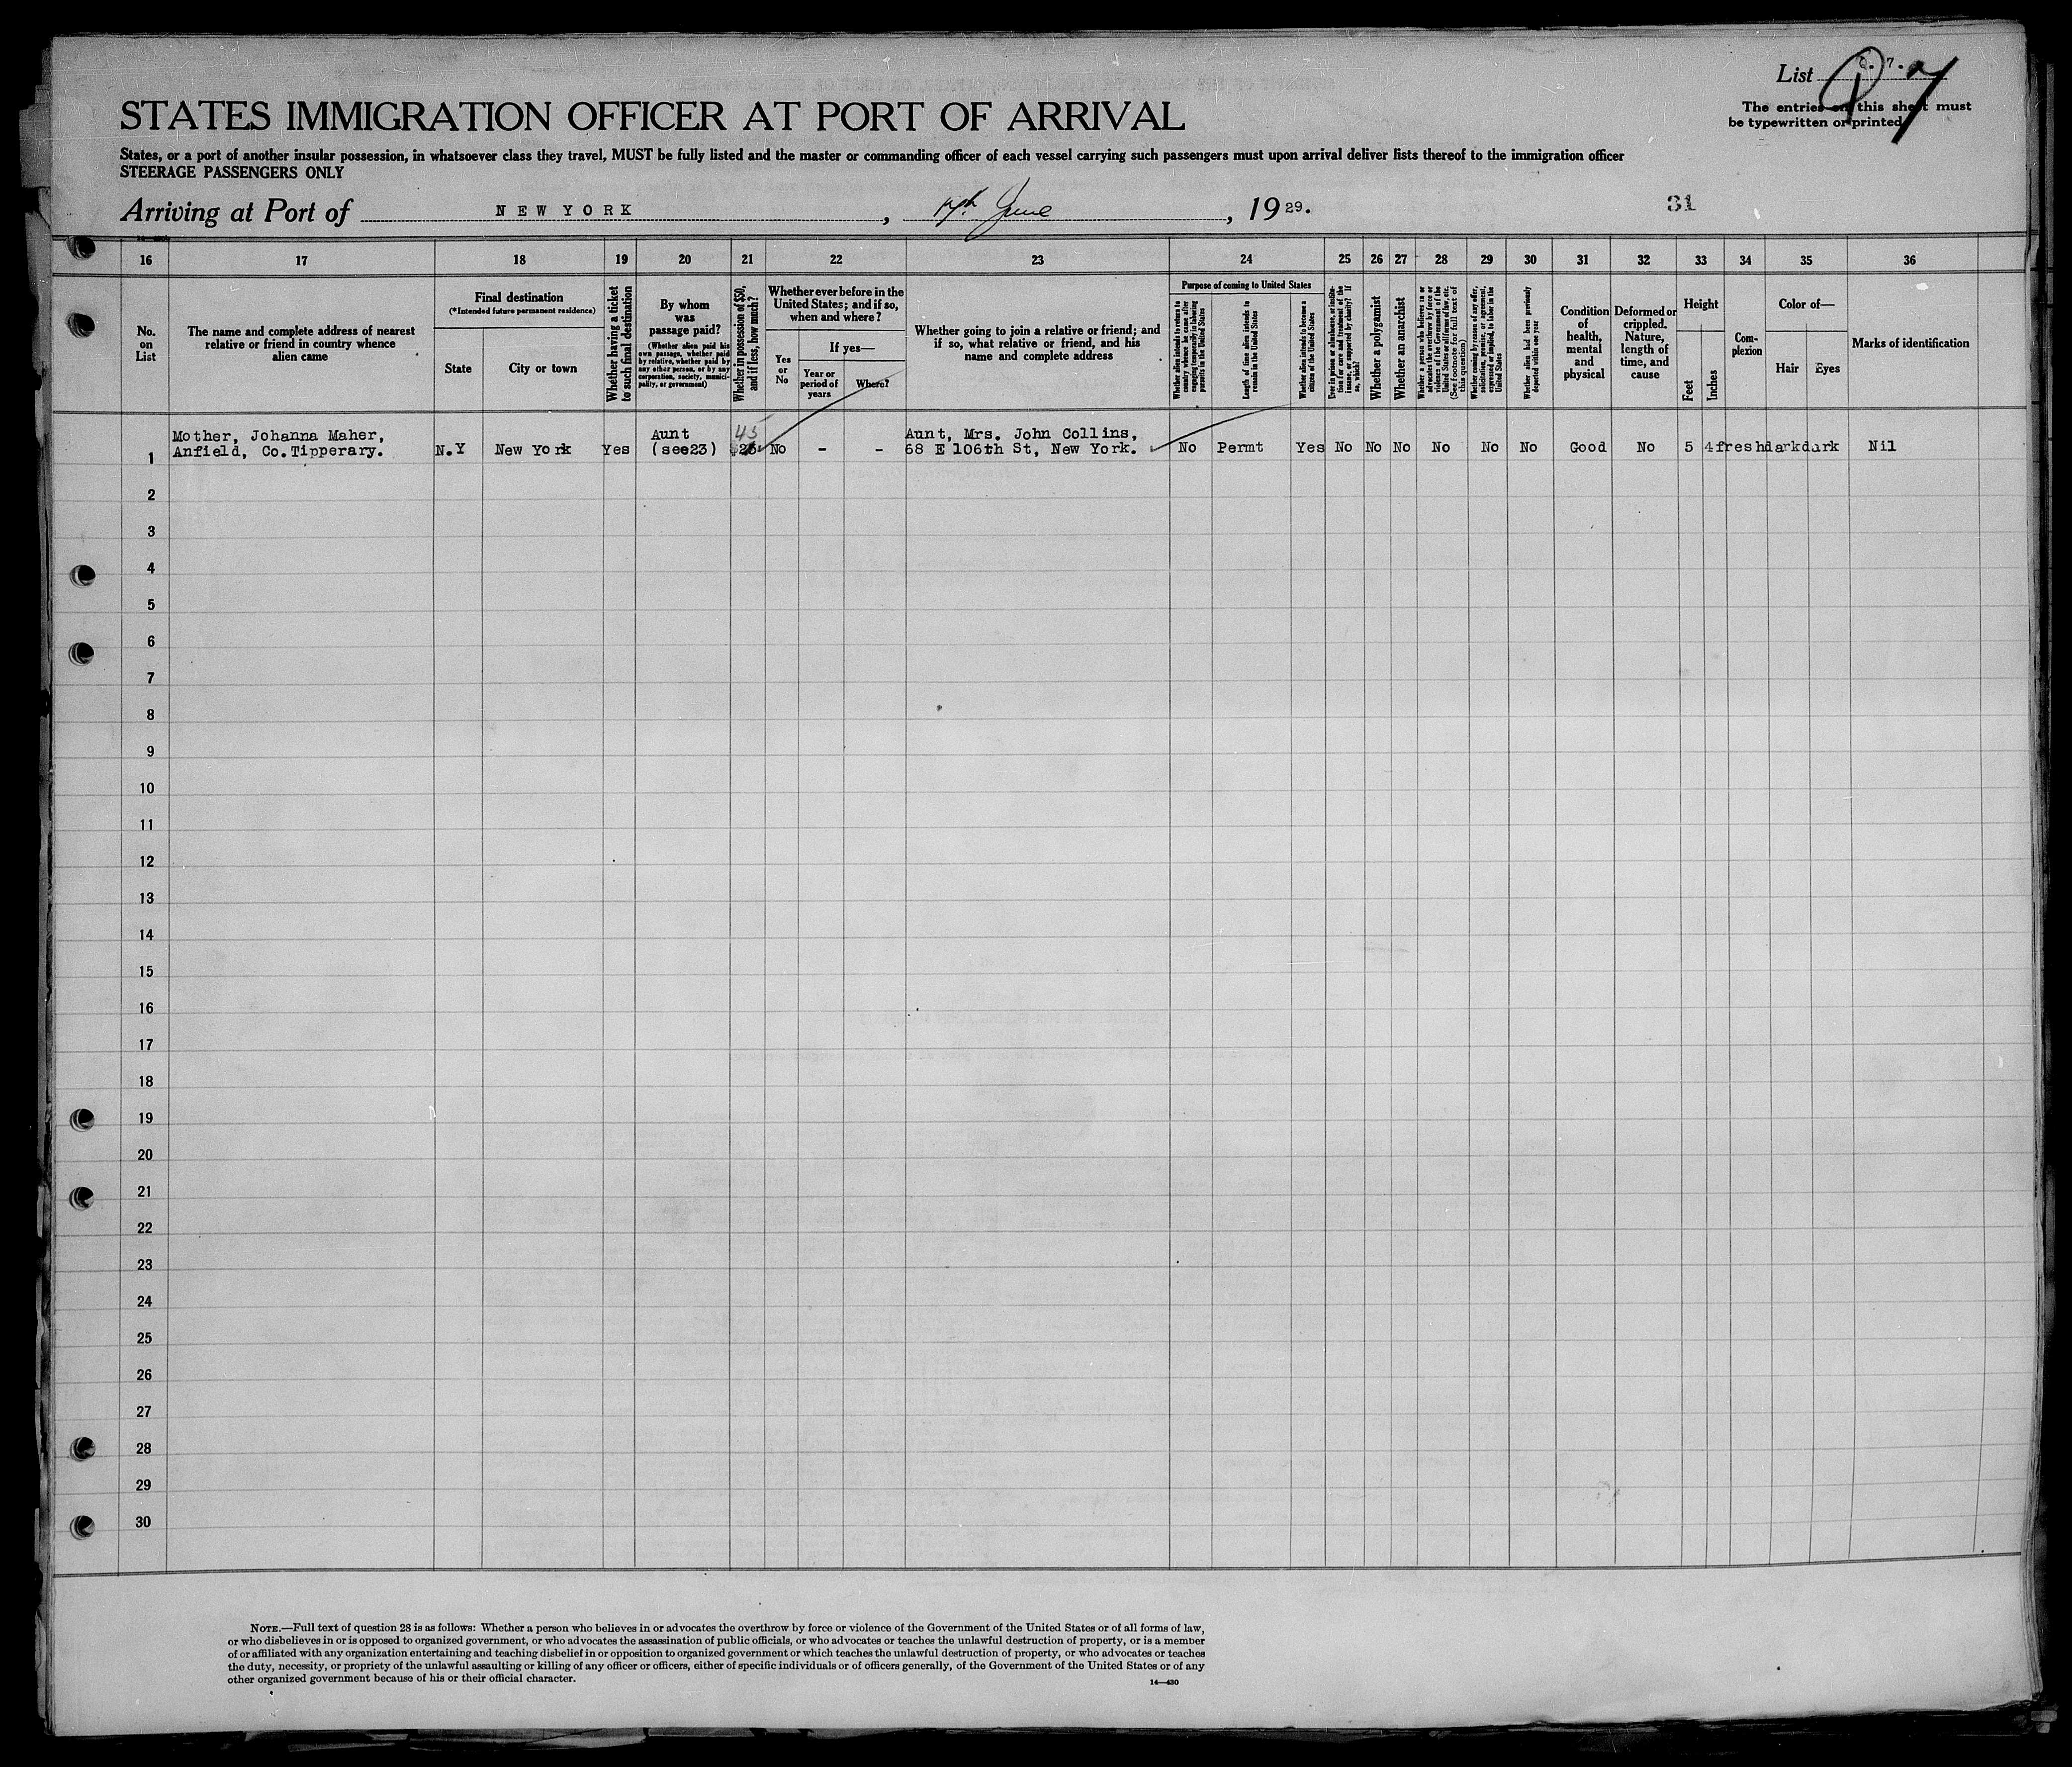 List
STATES IMMIGRATION OFFICER AT PORT OF ARRIVAL
The entries on this sheet must
be typewritten or printed
States, or a port of another insular possession, in whatsoever class they travel, MUST be fully listed and the master or commanding officer of each vessel carrying such passengers must upon arrival deliver lists thereof to the immigration officer
STEERAGE PASSENGERS ONLY
Arriving at Port of NEW YORK, June, 1929.
31
16 17 18 19 20 21 22 23 24 25 26 27 28 29 30 31 32 33 34 35 36
No.
on
List
The name and complete address of nearest
relative or friend in country whence
alien came
Final destination
(*Intended future permanent residence)
State
City or town
Whether having a ticket
to such final destination
By whom
was
passage paid?
(Whether alien paid his
own passage, whether paid
by relative, whether paid by
any other person, or by any
corporation, society, munici-
pality, or government)
Whether in possession of $50,
and if less, how much?
Whether ever before in the
United States; and if so,
when and where?
Yes
or
No
If yes—
Year or
period of
years
Where?
Whether going to join a relative or friend; and
if so, what relative or friend, and his
name and complete address
Purpose of coming to United States
Whether alien intends to return to
country whence he came after
engaging temporarily in laboring
pursuits in the United States
Length of time alien intends to
remain in the United States
Whether alien intends to become a
citizen of the United States
Ever in prison or almshouse, or institu-
tion for care and treatment of the
insane, or supported by charity? If
so, which?
Whether a polygamist
Whether an anarchist
Whether a person who believes in or
advocates the overthrow by force or
violence of the Government of the
United States or all forms of law, etc.
(See footnote for full text of
this question)
Whether coming by reason of any offer,
solicitation, promise, or agreement,
expressed or implied, to labor in the
United States
Whether alien had been previously
deported within one year
Condition
of
health,
mental
and
physical
Deformed or
crippled.
Nature,
length of
time, and
cause
Height
Feet
Inches
Com-
plexion
Color of—
Hair
Eyes
Marks of identification
Mother, Johanna Maher, Aunt 45 Aunt, Mrs. John Collins,
1 Anfield, Co.Tipperary. N.Y New York Yes (see23) No - - 68 E 106th St, New York. No Permt Yes No No No No No No Good No 5 4 fresh dark dark Nil
2
3
4
5
6
7
8
9
10
11
12
13
14
15
16
17
18
19
20
21
22
23
24
25
26
27
28
29
30
NOTE.—Full text of question 28 is as follows: Whether a person who believes in or advocates the overthrow by force or violence of the Government of the United States or of all forms of law,
or who disbelieves in or is opposed to organized government, or who advocates the assassination of public officials, or who advocates or teaches the unlawful destruction of property, or is a member
of or affiliated with any organization entertaining and teaching disbelief in or opposition to organized government or which teaches the unlawful destruction of property, or who advocates or teaches
the duty, necessity, or propriety of the unlawful assaulting or killing of any officer or officers, either of specific individuals or of officers generally, of the Government of the United States or of any
other organized government because of his or their official character.
14—430